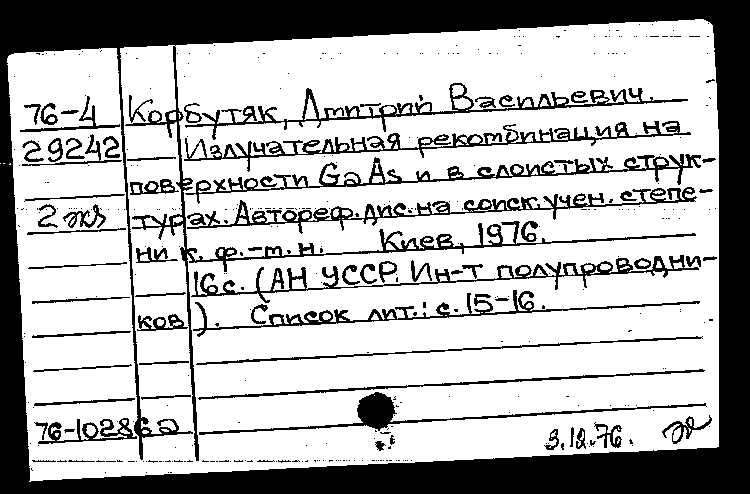 76-4 Корбутяк, Дмитрий Васильевич.
29242 Излучательная рекомбинация на
поверхности GaAs и в слоистых струк-
2 экз турах. Автореф. дис. на соиск. учен. степе-
ни к. ф.-т. н. Киев, 1976.
16 с. (АН УССР. Ин-т полупроводни-
ков). Список лит.: с. 15-16.
76-10286а
3.12.76.